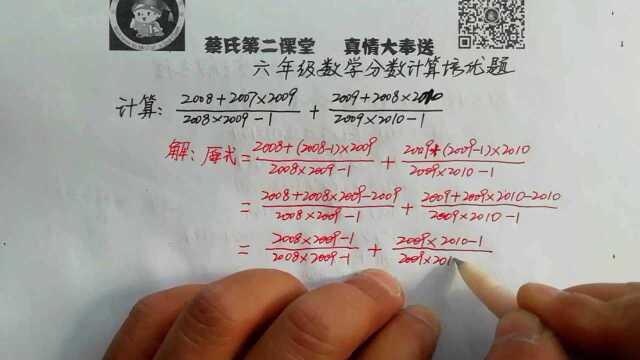 蔡氏第二课堂 真情大奉送
六年级数学分数计算培优题
计算: (2008+2007×2009)/(2008×2009-1) + (2009+2008×2010)/(2009×2010-1)
解: 原式=(2008+(2008-1)×2009)/(2008×2009-1) + (2009+(2009-1)×2010)/(2009×2010-1)
=(2008+2008×2009-2009)/(2008×2009-1) + (2009+2009×2010-2010)/(2009×2010-1)
=(2008×2009-1)/(2008×2009-1) + (2009×2010-1)/(2009×201